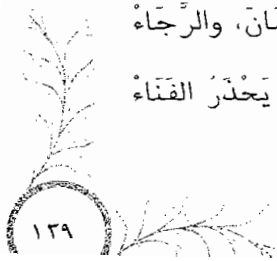 والرَّجَاءْ
يَحْذَرُ الفَنَاءْ
١٣٩